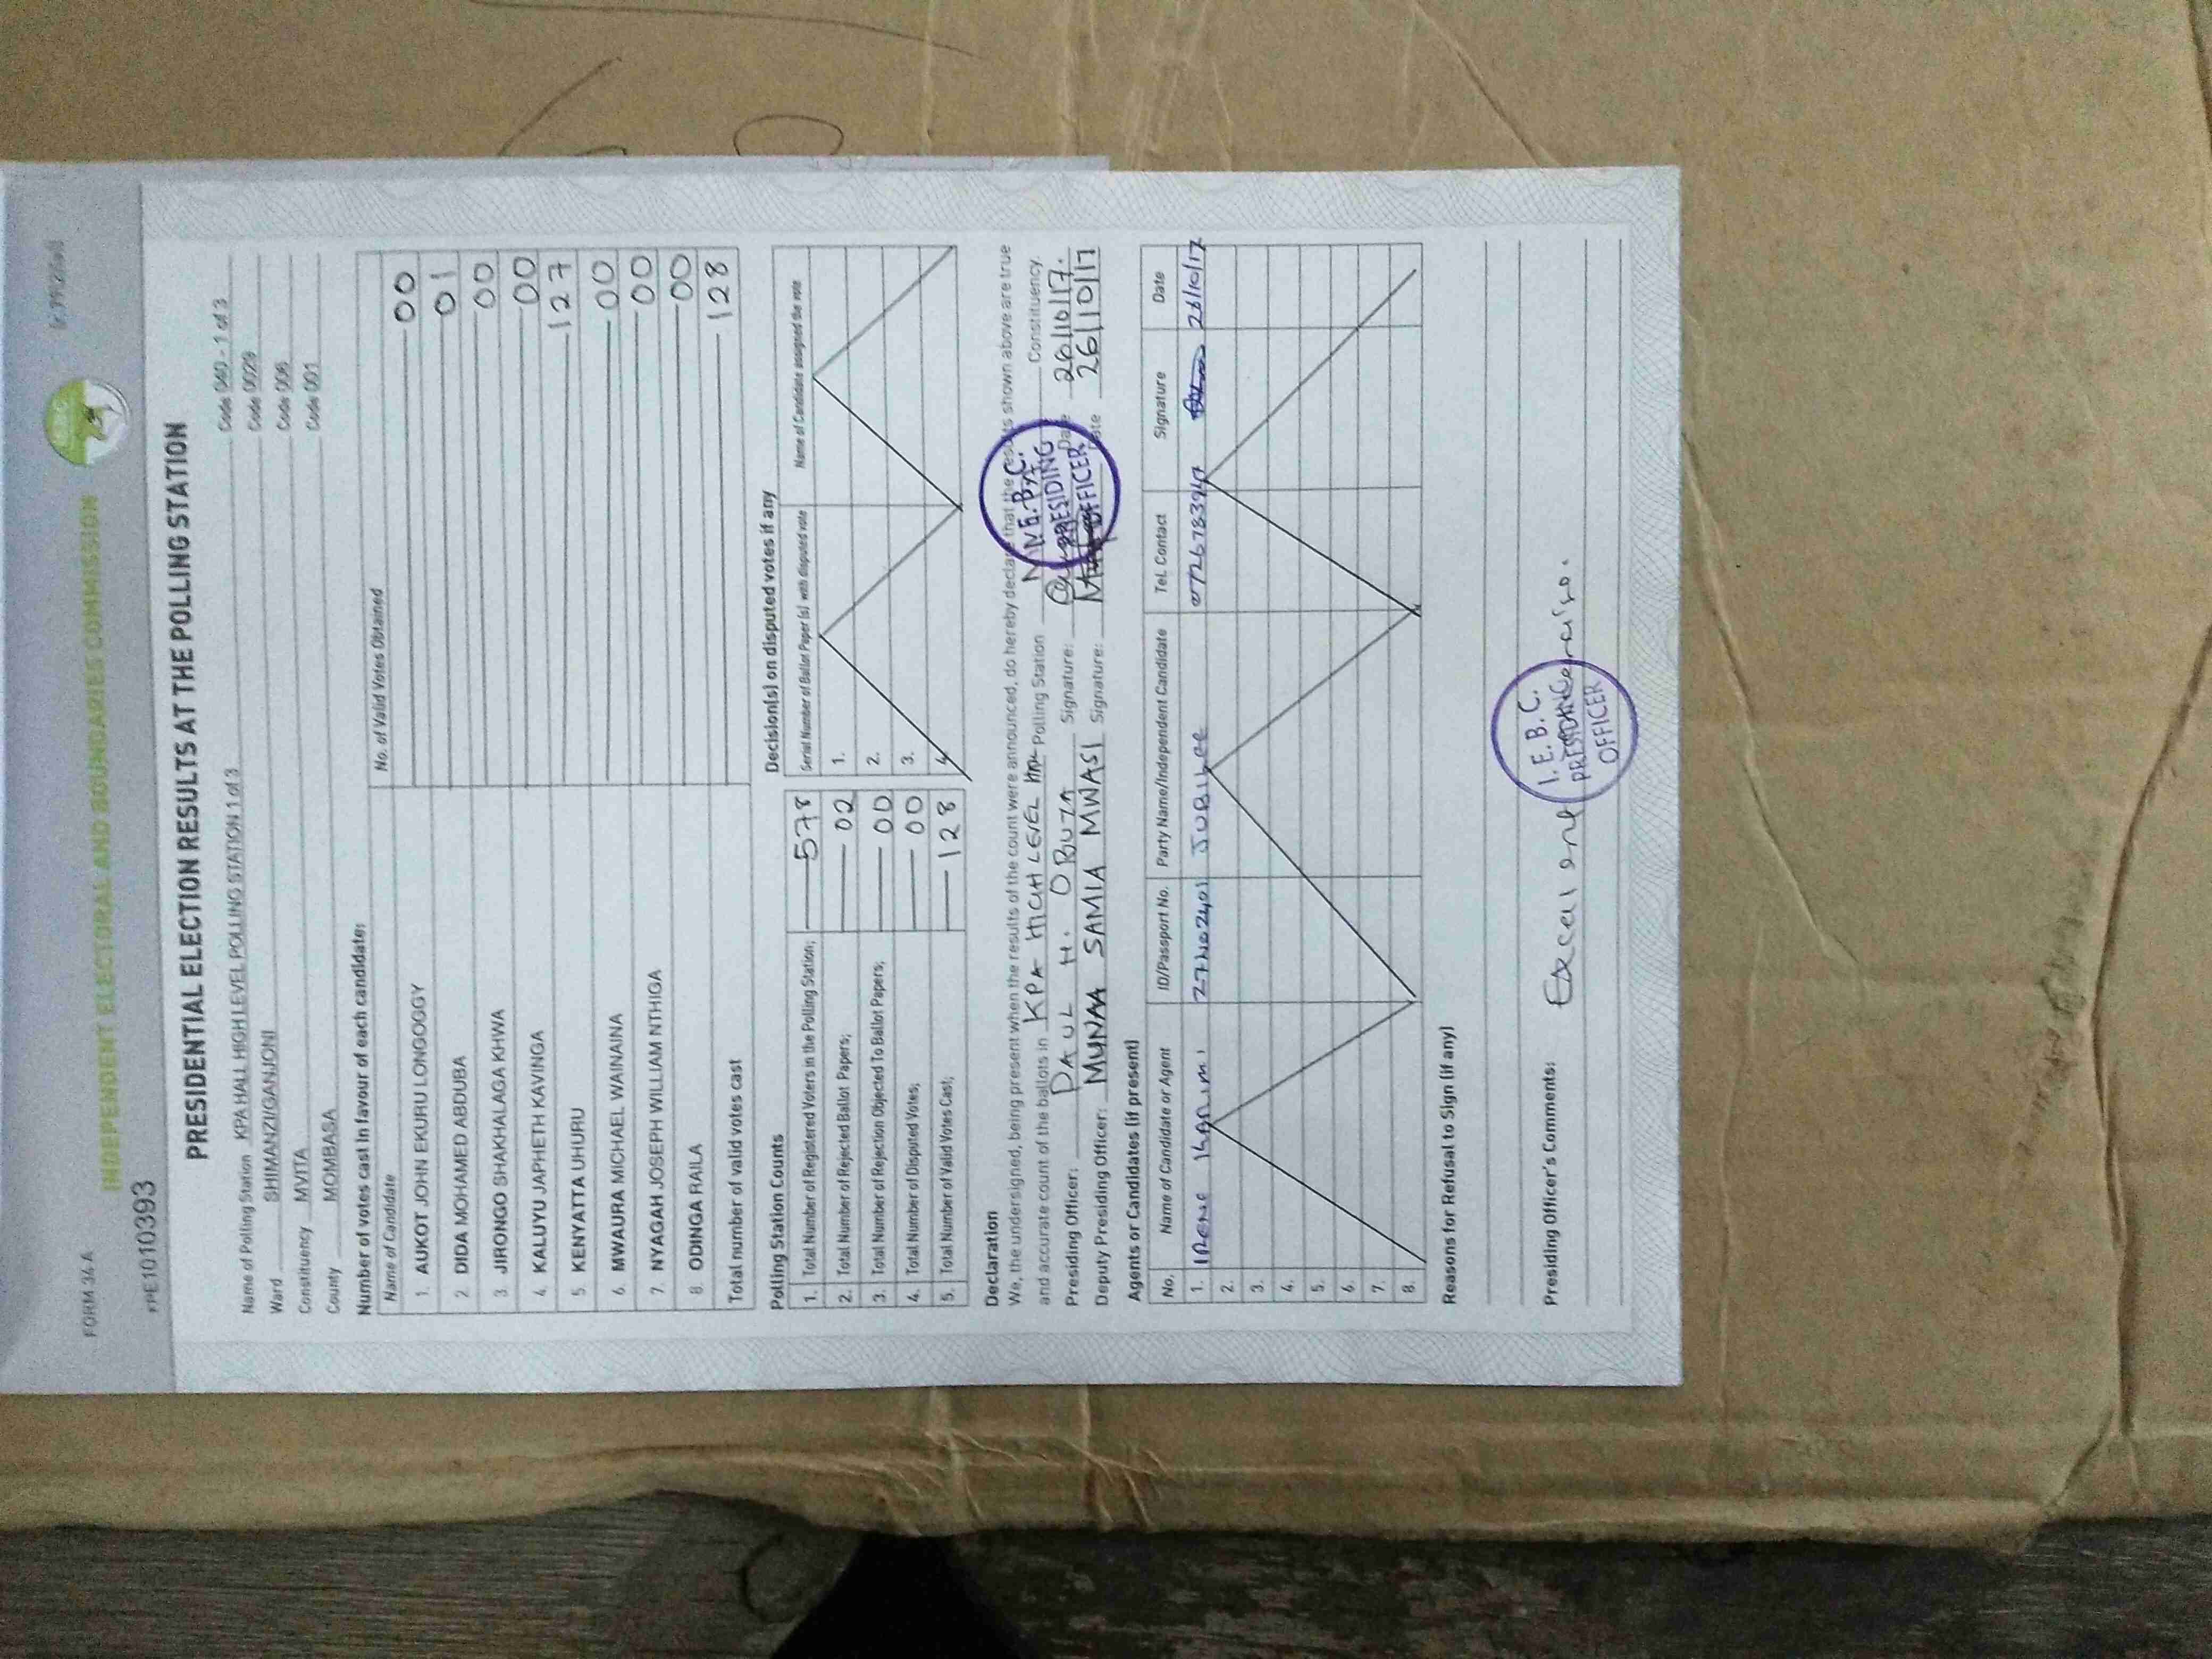 FORM 34 A
INDEPENDENT ELECTORAL AND BOUNDARIES COMMISSION
PE1010393
PRESIDENTIAL ELECTION RESULTS AT THE POLLING STATION
Name of Polling Station KPA HALL HIGH LEVEL POLLING STATION 1 of 3 Code 040 - 1 of 3
Ward SHIMANZI/GANJONI Code 0029
Constituency MVITA Code 006
County MOMBASA Code 001
Number of votes cast in favour of each candidate:
Name of Candidate No. of Valid Votes Obtained
1. AUKOT JOHN EKURU LONGOGGY 00
2. DIDA MOHAMED ABDUBA 01
3. JIRONGO SHAKHALAGA KHWA 00
4. KALUYU JAPHETH KAVINGA 00
5. KENYATTA UHURU 127
6. MWAURA MICHAEL WAINAINA 00
7. NYAGAH JOSEPH WILLIAM NTHIGA 00
8. ODINGA RAILA 00
Total number of valid votes cast 128
Polling Station Counts
1. Total Number of Registered Voters in the Polling Station; 578
2. Total Number of Rejected Ballot Papers; 02
3. Total Number of Rejection Objected To Ballot Papers; 00
4. Total Number of Disputed Votes; 00
5. Total Number of Valid Votes Cast; 128
Decision(s) on disputed votes if any
Serial Number of Ballot Paper (s) with disputed vote Name of Candidate assigned the vote
1.
2.
3.
4.
Declaration
We, the undersigned, being present when the results of the count were announced, do hereby declare that the results shown above are true
and accurate count of the ballots in KPA HIGH LEVEL Polling Station Constituency.
Presiding Officer: PAUL H. OBUZA Signature: Date 26/10/17.
Deputy Presiding Officer: MUNAA SAMIA MWASI Signature: Date 26/10/17
I.E.B.C.
PRESIDING
OFFICER
Agents or Candidates (if present)
No. Name of Candidate or Agent ID/Passport No. Party Name/Independent Candidate Tel. Contact Signature Date
1. IRENE JUBILEE 26/10/17
2.
3.
4.
5.
6.
7.
8.
Reasons for Refusal to Sign (if any)
Presiding Officer's Comments: Excellent
I. E. B. C.
PRESIDING
OFFICER